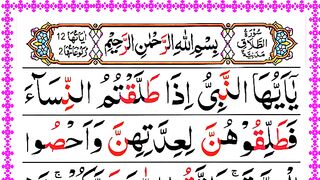 سُوْرَةُ الطَّلَاقِ مَدَنِيَّةٌ
بِسْمِ اللّٰهِ الرَّحْمٰنِ الرَّحِيْمِ
اٰيَاتُهَا 12
رُكُوْعَاتُهَا 2
يٰۤاَيُّهَا النَّبِىُّ اِذَا طَلَّقْتُمُ النِّسَآءَ
فَطَلِّقُوْهُنَّ لِعِدَّتِهِنَّ وَاَحْصُوا